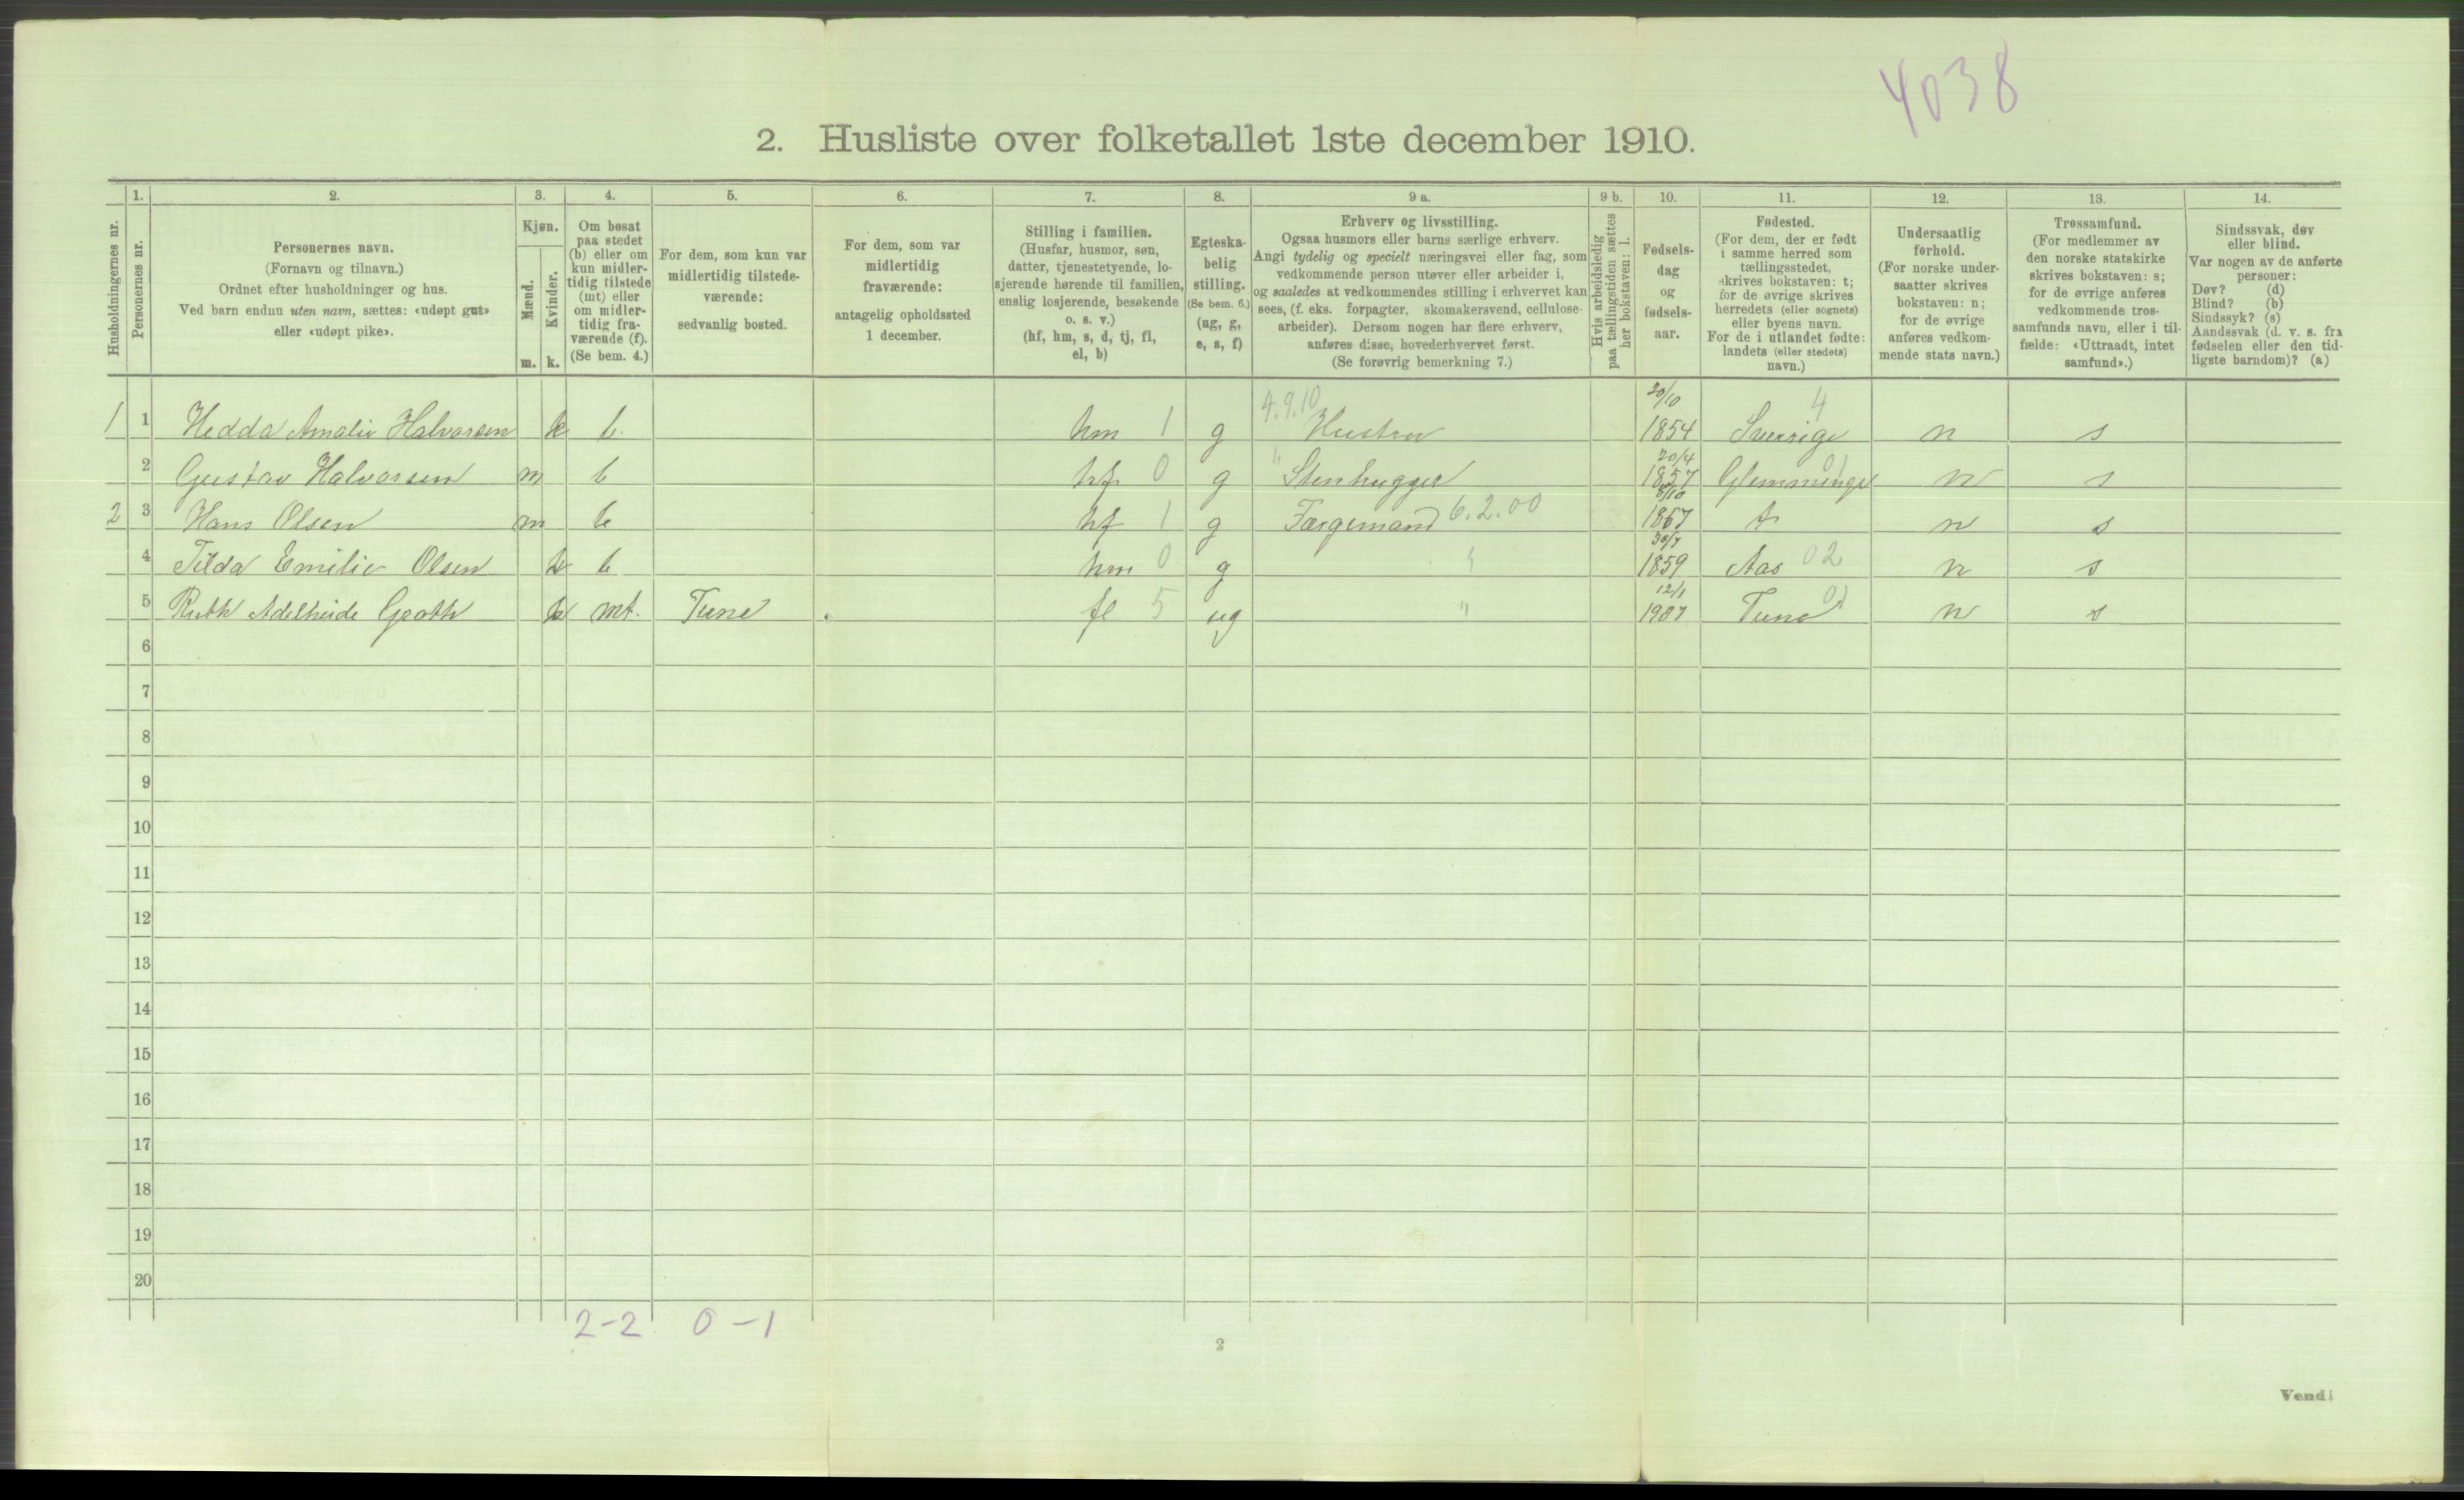 4038
2. Husliste over folketallet 1ste december 1910.
Husholdningernes nr.
1.
Personernes nr.
2.
Personernes navn.
(Fornavn og tilnavn.)
Ordnet efter husholdninger og hus.
Ved barn endnu uten navn, sættes: «udøpt gut»
eller «udøpt pike».
3.
Kjøn.
Mænd.
m.
Kvinder.
k.
4.
Om bosat
paa stedet
(b) eller om
kun midler-
tidig tilstede
(mt) eller
om midler-
tidig fra-
værende (f).
(Se bem. 4.)
5.
For dem, som kun var
midlertidig tilstede-
værende:
sedvanlig bosted.
6.
For dem, som var
midlertidig
fraværende:
antagelig opholdssted
1 december.
7.
Stilling i familien.
(Husfar, husmor, søn,
datter, tjenestetyende, lo-
sjerende hørende til familien,
enslig losjerende, besøkende
o. s. v.)
(hf, hm, s, d, tj, fl,
el, b)
8.
Egteska-
belig
stilling.
(Se bem. 6.)
(ug, g,
e, s, f)
9 a.
Erhverv og livsstilling.
Ogsaa husmors eller barns særlige erhverv.
Angi tydelig og specielt næringsvei eller fag, som
vedkommende person utøver eller arbeider i,
og saaledes at vedkommendes stilling i erhvervet kan
sees, (f. eks. forpagter, skomakersvend, cellulose-
arbeider). Dersom nogen har flere erhverv,
anføres disse, hovederhvervet først.
(Se forøvrig bemerkning 7.)
9 b.
Hvis arbeidsledig
paa tællingstiden sættes
her bokstaven: l.
10.
Fødsels-
dag
og
fødsels-
aar.
11.
Fødested.
(For dem, der er født
i samme herred som
tællingsstedet,
skrives bokstaven: t;
for de øvrige skrives
herredets (eller sognets)
eller byens navn.
For de i utlandet fødte:
landets (eller stedets)
navn.)
12.
Undersaatlig
forhold.
(For norske under-
saatter skrives
bokstaven: n;
for de øvrige
anføres vedkom-
mende stats navn.)
13.
Trossamfund.
(For medlemmer av
den norske statskirke
skrives bokstaven: s;
for de øvrige anføres
vedkommende tros-
samfunds navn, eller i til-
fælde: «Uttraadt, intet
samfund».)
14.
Sindssvak, døv
eller blind.
Var nogen av de anførte
personer:
Døv? (d)
Blind? (b)
Sindssyk? (s)
Aandssvak (d. v. s. fra
fødselen eller den tid-
ligste barndom)? (a)
1 1 Hedda Amalie Halvorsen k b. hm 1 g 4.9.10 Hustru 20/10 1854 Sverrige 4 n s
2 Gustav Halvorsen m b hf 0 g " Stenhugger 20/4 1857 Glemminge 01 n s
2 3 Hans Olsen m b hf 1 g Færgemand 6.2.00 8/10 1867 t n s
4 Tilda Emilie Olsen k b hm 0 g " 30/7 1859 Aas 02 n s
5 Ruth Adelheide Groth k mt. Tune fl 5 ug " 12/1 1907 Tune 01 n s
6
7
8
9
10
11
12
13
14
15
16
17
18
19
20
2-2 0-1
2
Vend!